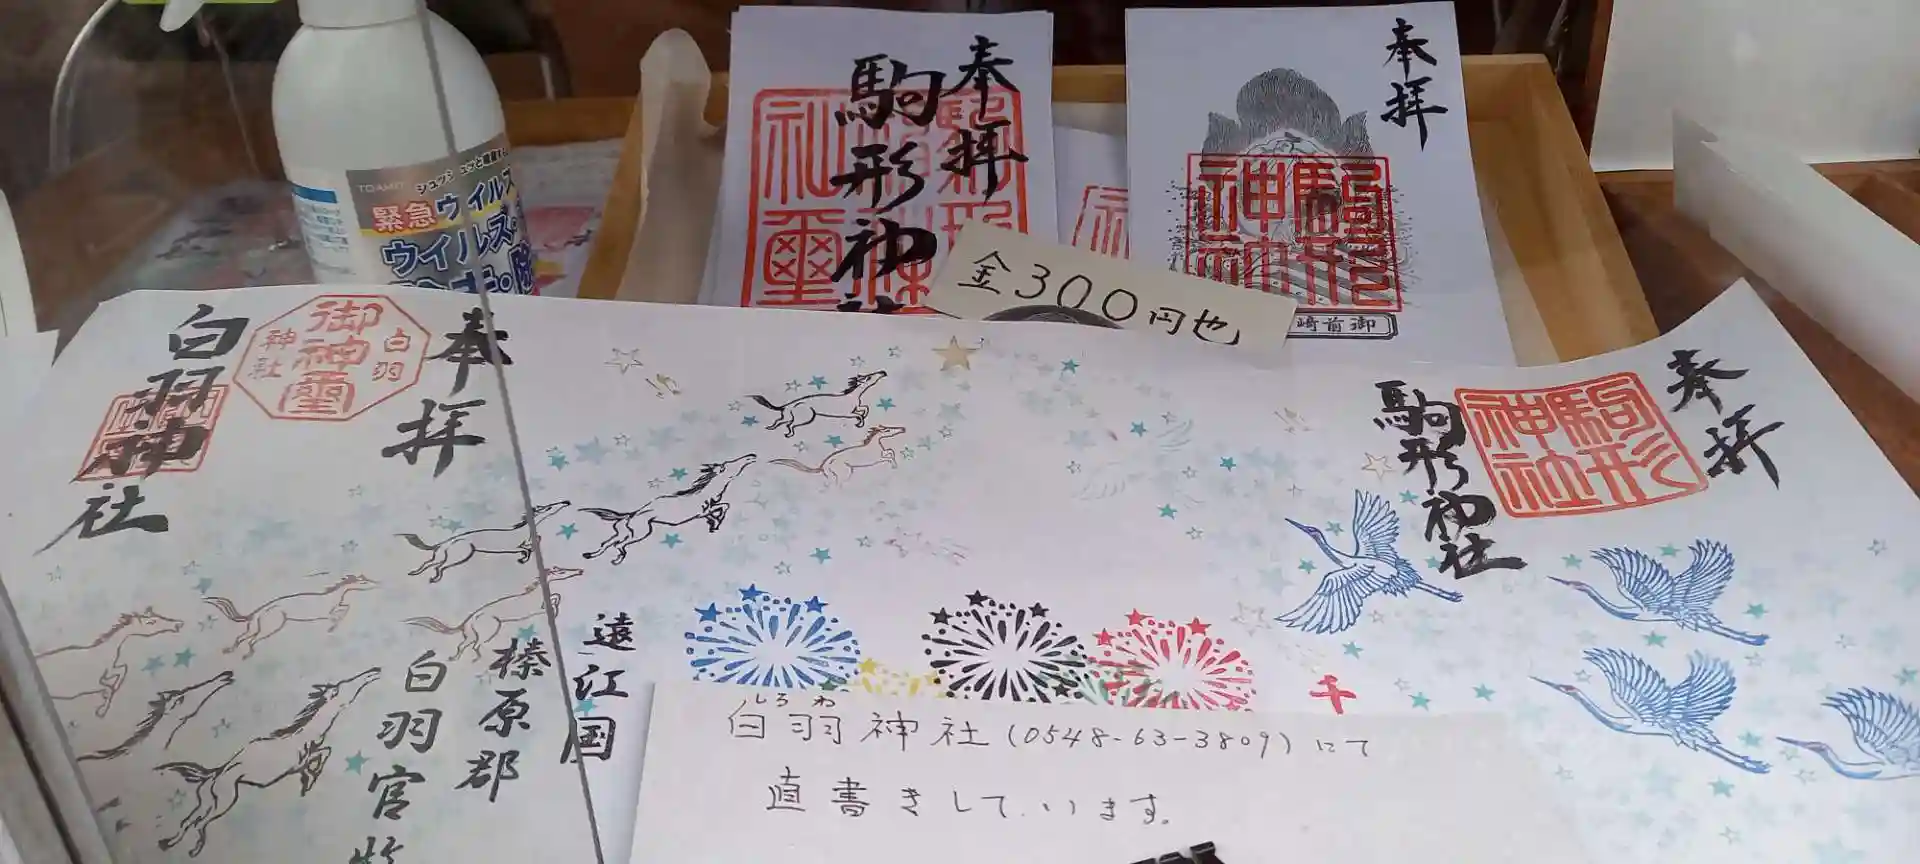 TOAMIT
緊急ウイルス
ウイルス・
奉拝
駒形神社
奉拝
駒形神社
御前崎
金300円也
奉拝
白羽神社
御神璽
白羽
神社
遠江国
榛原郡
白羽官牧
奉拝
駒形神社
駒形神社
千
しろわ
白羽神社(0548-63-3809)にて
直書きしています。